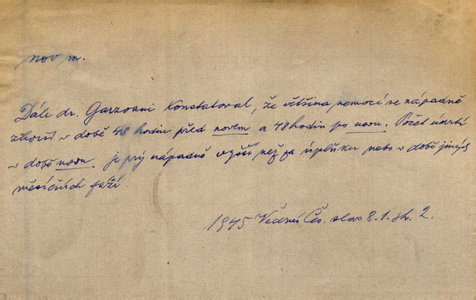 nov m.
Dále dr. Garzonni konstatoval, že většina nemocí se nápadně
zhorší v době 48 hodin před novem a 48 hodin po novu. Počet úmrtí
v době novu je prý nápadně vyšší než za úplňku nebo v době jiných
měsíčních fází.
1945 Večerní Čes. slovo 8.1. str. 2.